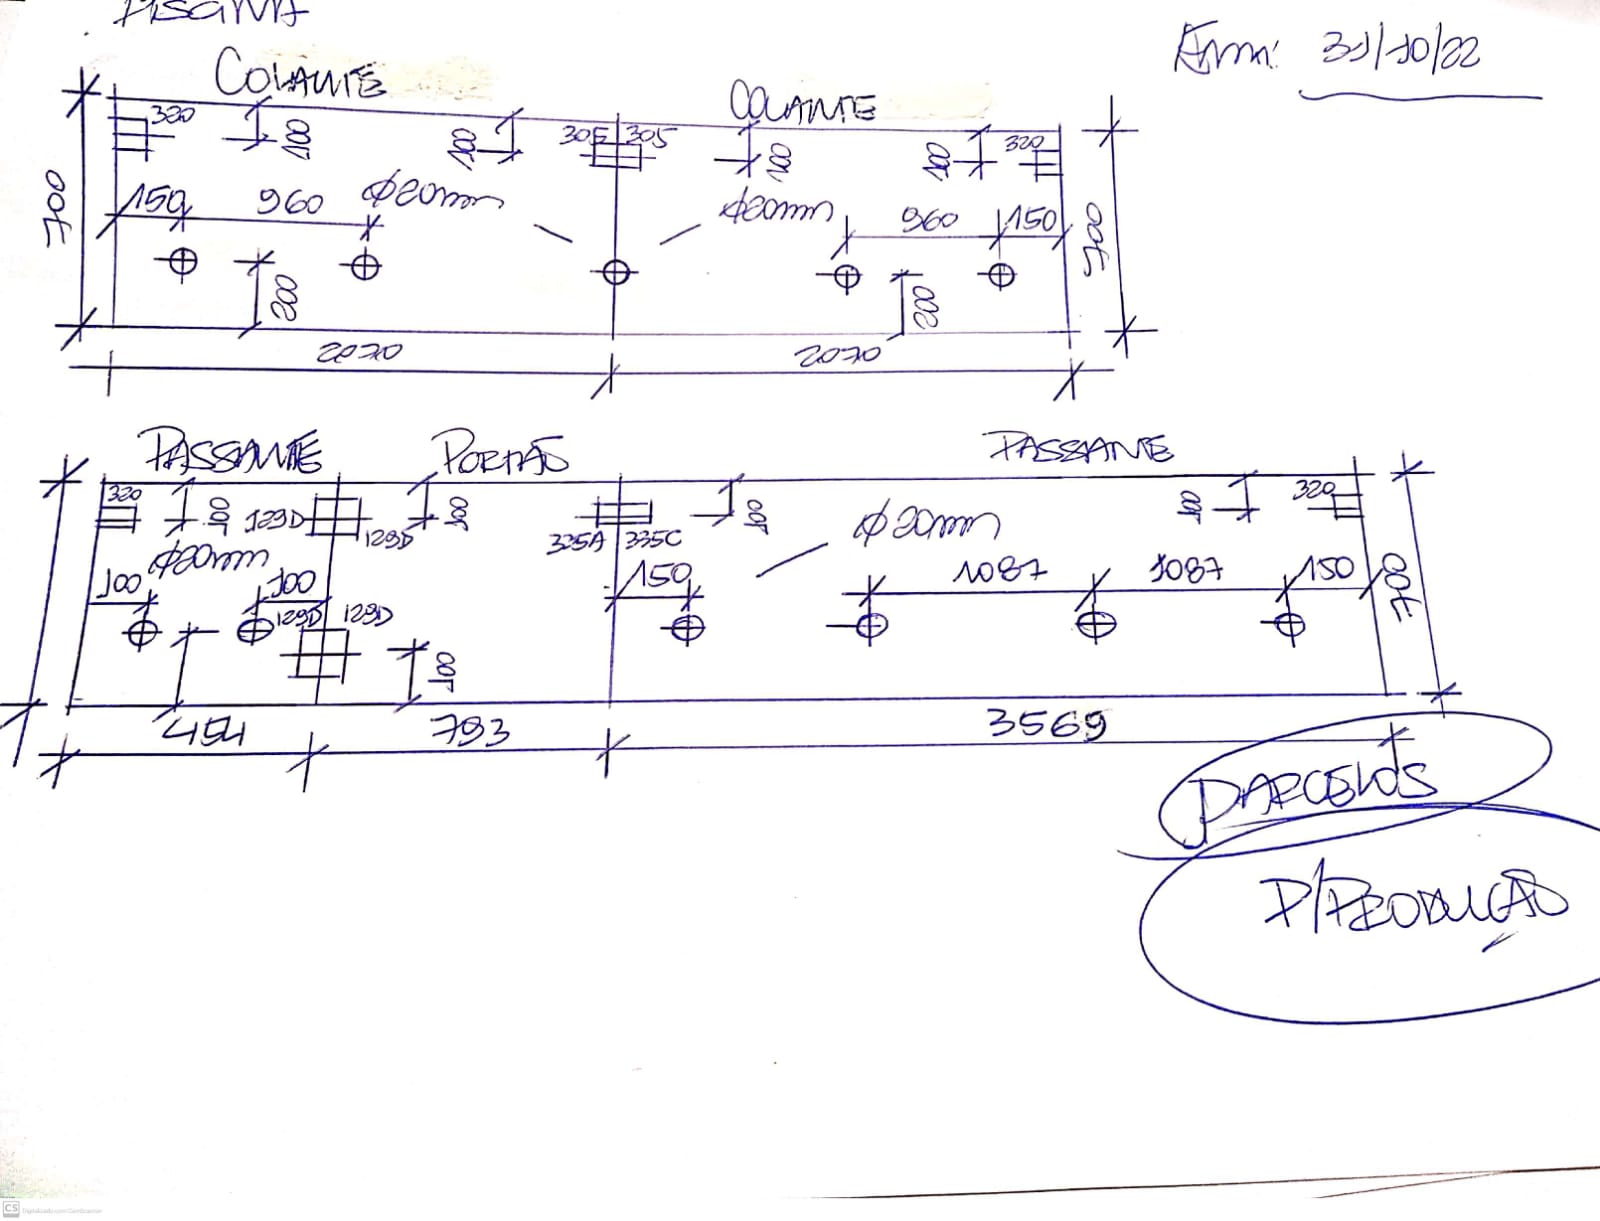 PISCINA
Em: 31/10/22
COLANTE
COLANTE
320
100
100
305 305
100
100
320
700
150 960 Ø20mm
Ø20mm 960 150
700
200
200
2070
2070
PASSANTE PORTÃO PASSANTE
320 100 129D 129D 100
335A 335C 100
100 320
Ø20mm
Ø20mm
100 100
129D 129D
150
1087 1087 150
700
100
454 793 3569
BARCELOS
P/PRODUÇÃO
CS Digitalizado com CamScanner